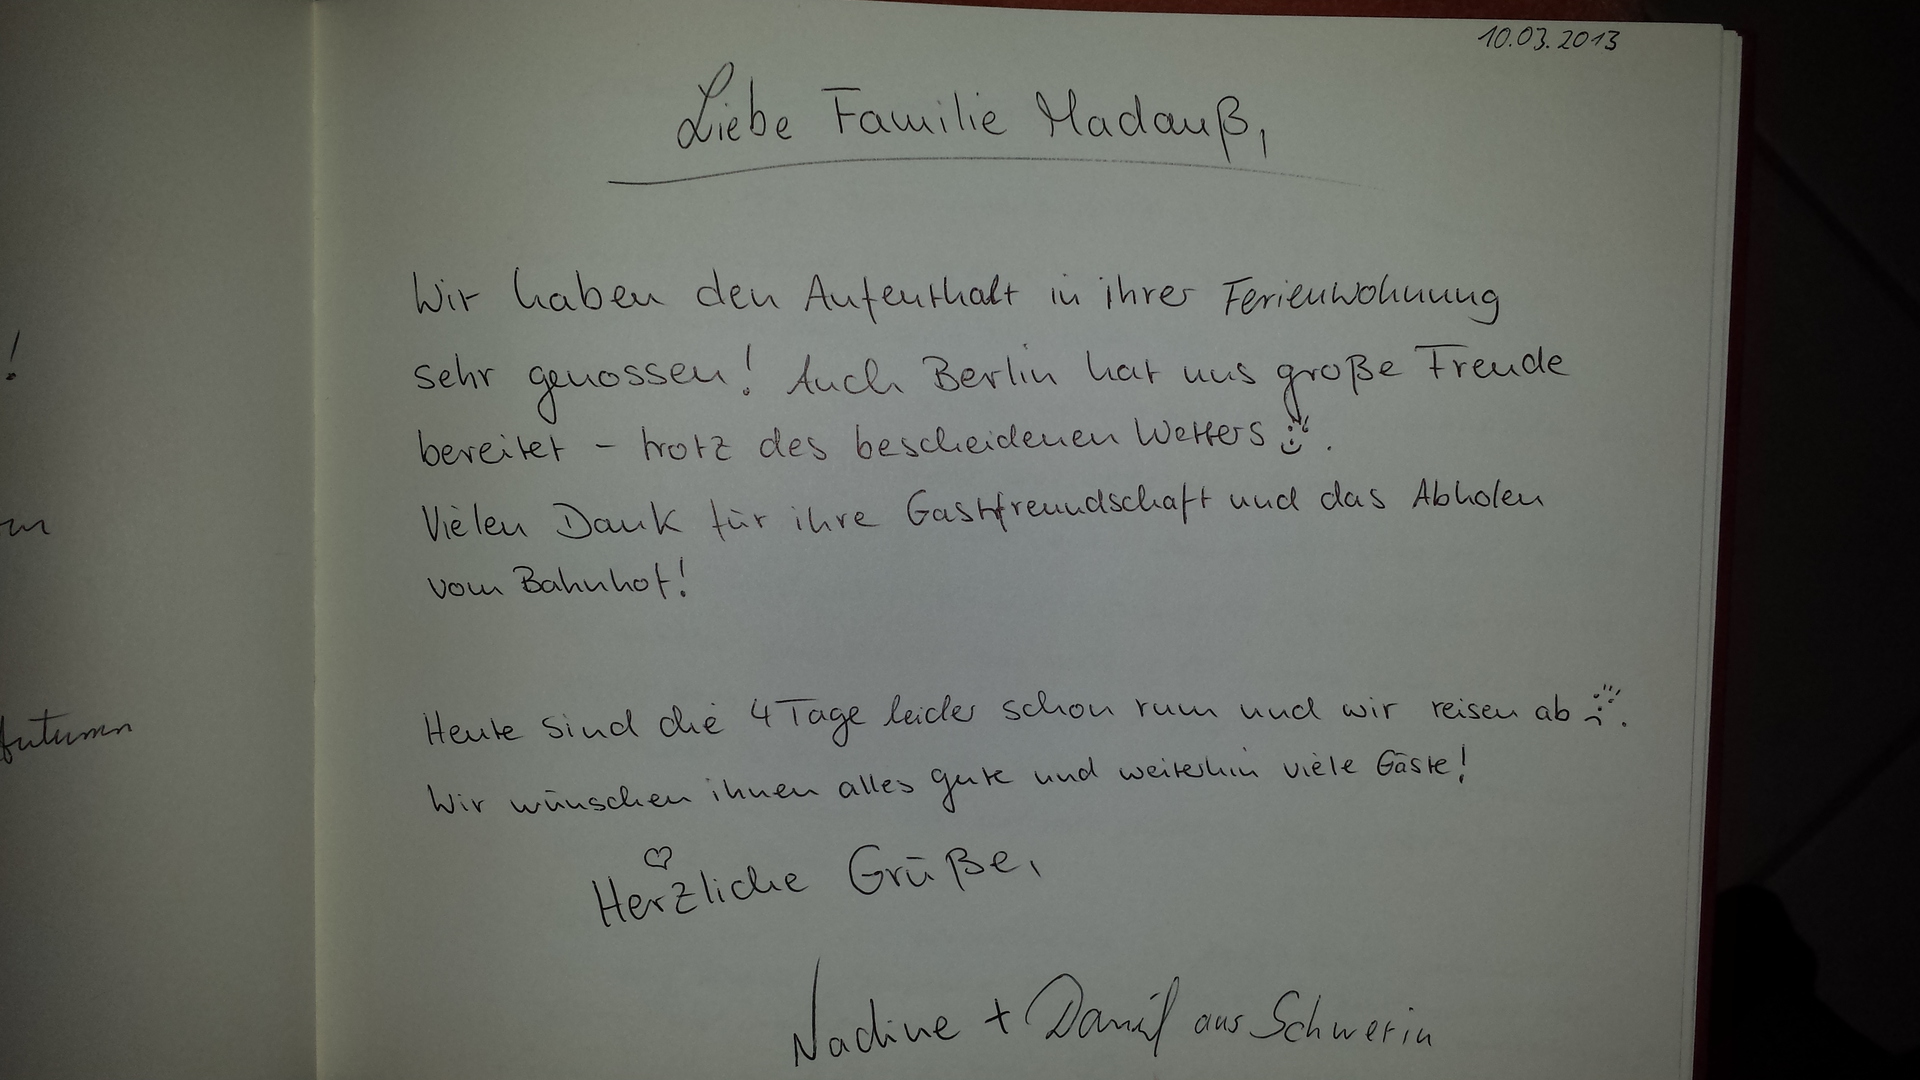 !
m
Autumn
10.03.2013
Liebe Familie Madauß,
Wir haben den Aufenthalt in ihrer Ferienwohnung
sehr genossen! Auch Berlin hat uns große Freude
bereitet - trotz des bescheidenen Wetters.
Vielen Dank für ihre Gastfreundschaft und das Abholen
vom Bahnhof!
Heute sind die 4 Tage leider schon rum und wir reisen ab.
Wir wünschen ihnen alles gute und weiterhin viele Gäste!
Herzliche Grüße,
Nadine + Daniel aus Schwerin